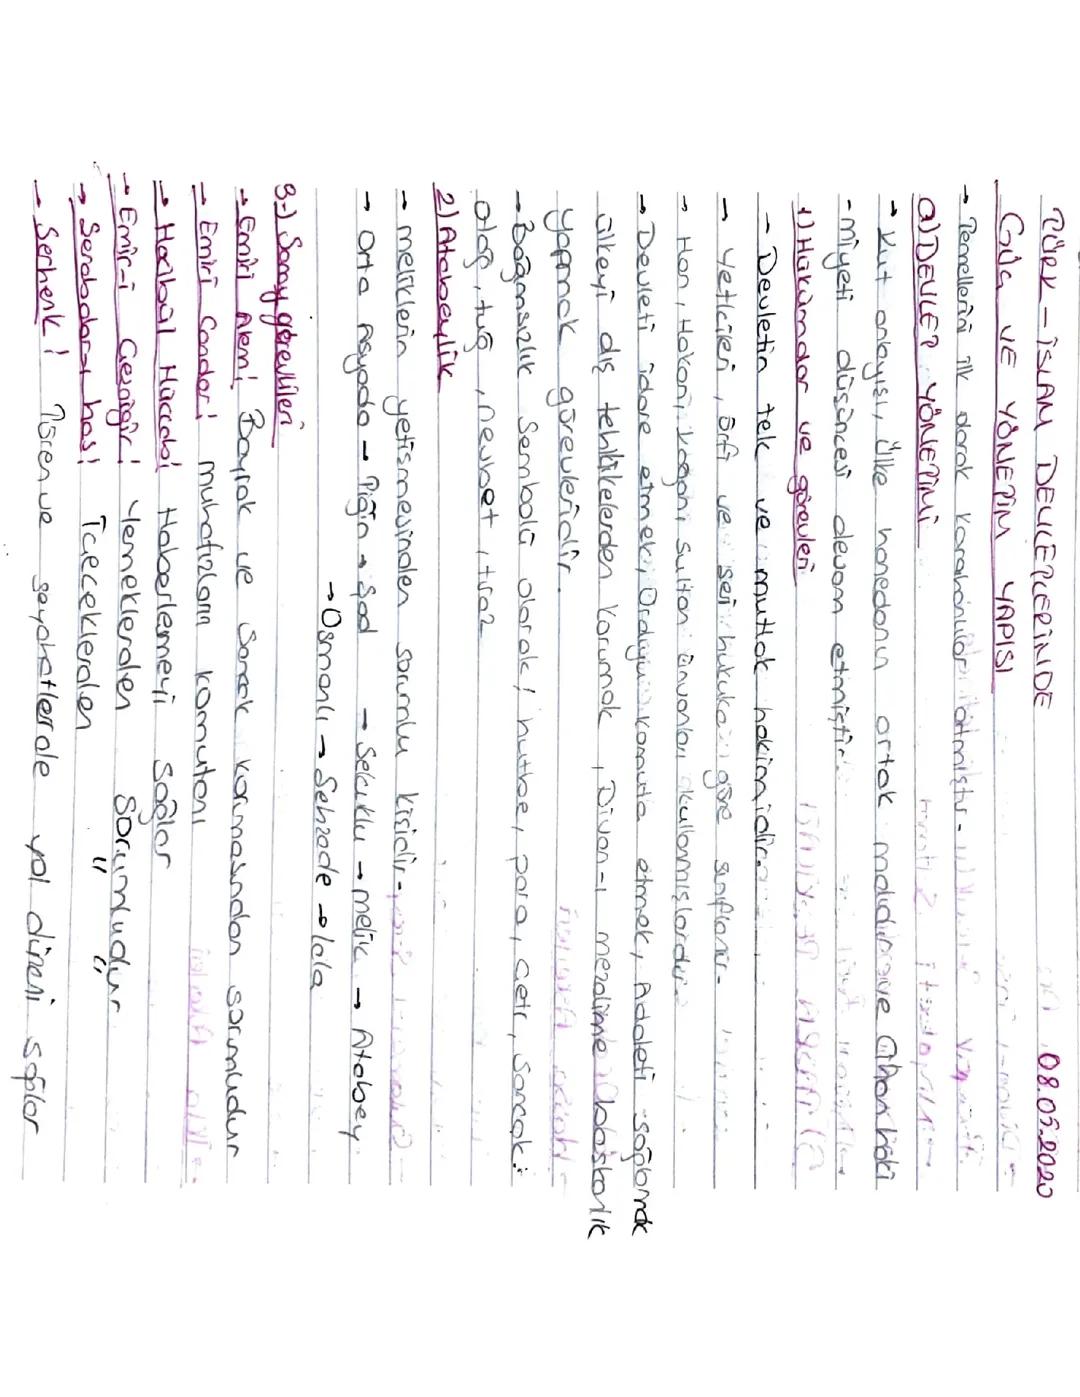 TÜRK-İSLAM DEVLETLERİNDE 08.05.2020
GÜÇ VE YÖNETİM YAPISI
→ Temellerini ilk olarak Karahanlılar atmıştır.
a) DEVLET YÖNETİMİ
→ Kut anlayışı, ülke hanedanın ortak malıdır ve Cihan haki
-miyeti düşüncesi devam etmiştir.
1) Hükümdar ve görevleri
→ Devletin tek ve mutlak hakimidir.
→ Yetkileri, örfi ve şeri hukuka göre sınıflanır.
→ Han, Hakan, Kağan, Sultan ünvanları kullanmışlardır.
→ Devleti idare etmek, Orduyu komuta etmek, Adaleti sağlamak
ülkeyi dış tehlikelerden korumak, Divan-ı mezalime başkanlık
yapmak görevleridir.
→ Bağımsızlık Sembolü olarak; hutbe, para, çetr, sancak,
otağ, tuğ, nevbet, tıraz
2) Atabeylik
→ meliklerin yetişmesinden sorumlu kişidir.
→ Orta Asyada → Tigin → Şad → Selçuklu → melik → Atabey
→ Osmanlı → Şehzade → lala
3-) Saray görevlileri
→ Emiri Alem: Bayrak ve Sancak korumasından sorumludur
→ Emiri Candar: muhafızların komutanı
→ Hacibül Hüccab: Haberlemeyi Sağlar
→ Emir-i Çeşnigir: Yemeklerden Sorumludur
→ Serabdar-ı has: İçeceklerden " "
→ Serhenk: Tören ve seyahatlerde yol düzeni sağlar